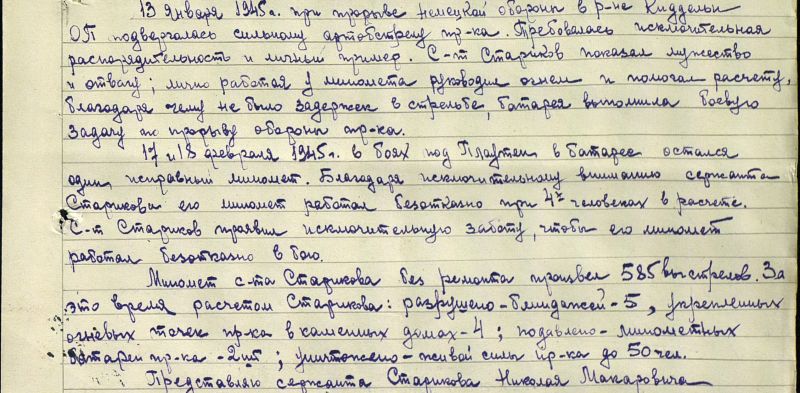 13 января 1945г. при прорыве немецкой обороны в р-не Киддельн
ОП подвергалась сильному артобстрелу пр-ка. Требовалась исключительная
распорядительность и личный пример. С-т Стариков показал мужество
и отвагу; лично работая у миномета руководил огнем и помогал расчету,
благодаря чему не было задержек в стрельбе, батарея выполнила боевую
задачу по прорыву обороны пр-ка.
17 и 18 февраля 1945г. в боях под Плаутен в батарее остался
один исправный миномет. Благодаря исключительному вниманию сержанта
Старикова его миномет работал безотказно при 4х человеках в расчете.
С-т Стариков проявил исключительную заботу, чтобы его миномет
работал безотказно в бою.
Миномет с-та Старикова без ремонта произвел 585 выстрелов. За
это время расчетом Старикова: разрушено-блиндажей-5, укрепленных
огневых точек пр-ка в каменных домах-4; подавлено-минометных
батарей пр-ка -2шт; уничтожено-живой силы пр-ка до 50 чел.
Представляю сержанта Старикова Николая Макаровича